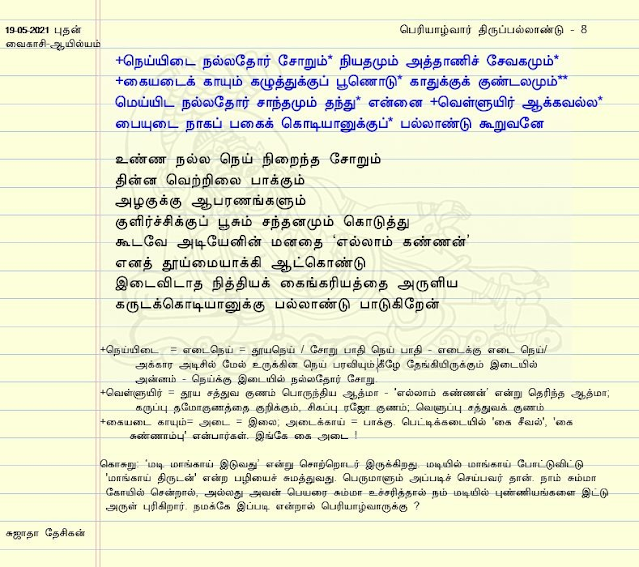 19-05-2021 புதன்
வைகாசி-ஆயில்யம்
பெரியாழ்வார் திருப்பல்லாண்டு - 8
+நெய்யிடை நல்லதோர் சோறும்* நியதமும் அத்தாணிச் சேவகமும்*
+கையடைக் காயும் கழுத்துக்குப் பூணொடு* காதுக்குக் குண்டலமும்**
மெய்யிட நல்லதோர் சாந்தமும் தந்து* என்னை +வெள்ளுயிர் ஆக்கவல்ல*
பையுடை நாகப் பகைக் கொடியானுக்குப்* பல்லாண்டு கூறுவனே
உண்ண நல்ல நெய் நிறைந்த சோறும்
தின்ன வெற்றிலை பாக்கும்
அழகுக்கு ஆபரணங்களும்
குளிர்ச்சிக்குப் பூசும் சந்தனமும் கொடுத்து
கூடவே அடியேனின் மனதை ‘எல்லாம் கண்ணன்’
எனத் தூய்மையாக்கி ஆட்கொண்டு
இடைவிடாத நித்தியக் கைங்கரியத்தை அருளிய
கருடக்கொடியானுக்கு பல்லாண்டு பாடுகிறேன்
+நெய்யிடை = எடைநெய் = தூயநெய் / சோறு பாதி நெய் பாதி - எடைக்கு எடை நெய்/
அக்கார அடிசில் மேல் உருக்கின நெய் பரவியும்,கீழே தேங்கியிருக்கும் இடையில்
அன்னம் - நெய்க்கு இடையில் நல்லதோர் சோறு.
+வெள்ளுயிர் = தூய சத்துவ குணம் பொருந்திய ஆத்மா - 'எல்லாம் கண்ணன்’ என்று தெரிந்த ஆத்மா;
கருப்பு தமோகுணத்தை குறிக்கும், சிகப்பு ரஜோ குணம்; வெளுப்பு சத்துவக் குணம்.
+கையடை காயும்= அடை = இலை; அடைக்காய் = பாக்கு. பெட்டிக்கடையில் 'கை சீவல்', 'கை
சுண்ணாம்பு' என்பார்கள். இங்கே கை அடை !
கொசுறு: 'மடி மாங்காய் இடுவது’ என்று சொற்றொடர் இருக்கிறது. மடியில் மாங்காய் போட்டுவிட்டு
'மாங்காய் திருடன்' என்ற பழியைச் சுமத்துவது. பெருமாளும் அப்படிச் செய்பவர் தான். நாம் சும்மா
கோயில் சென்றால், அல்லது அவன் பெயரை சும்மா உச்சரித்தால் நம் மடியில் புண்ணியங்களை இட்டு
அருள் புரிகிறார். நமக்கே இப்படி என்றால் பெரியாழ்வாருக்கு ?
சுஜாதா தேசிகன்